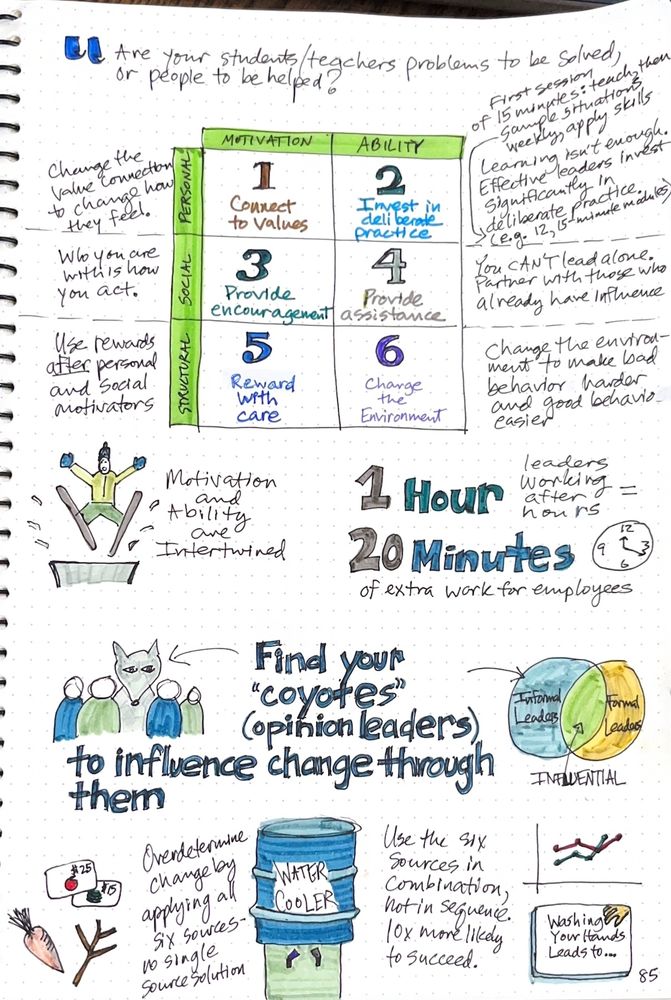 Are your students/teachers problems to be solved,
or people to be helped?
First session
of 15 minutes: teach, then
sample situations,
weekly, apply skills
MOTIVATION
ABILITY
PERSONAL
SOCIAL
STRUCTURAL
Change the
value connection
to change how
they feel.
1
Connect
to values
2
Invest in
deliberate
practice
Learning isn't enough.
Effective leaders invest
significantly in
deliberate practice.
(e.g. 12, 15-minute modules)
Who you are
with is how
you act.
3
Provide
encouragement
4
Provide
assistance
You CAN'T lead alone.
Partner with those who
already have influence
Use rewards
after personal
and social
motivators
5
Reward
with
care
6
Change
the
Environment
Change the environ-
ment to make bad
behavior harder
and good behavio
easier
Motivation
and
Ability
are
Intertwined
1 Hour
leaders
working
after
hours
=
20 Minutes
12
3
6
9
of extra work for employees
Find your
"coyotes"
(opinion leaders)
to influence change through
them
Informal
Leaders
Formal
Leaders
INFLUENTIAL
$25
$15
Overdetermine
change by
applying all
six sources-
no single
source solution
WATER
COOLER
Use the six
sources in
combination,
not in sequence.
10x more likely
to succeed.
Washing
Your Hands
Leads to...
85